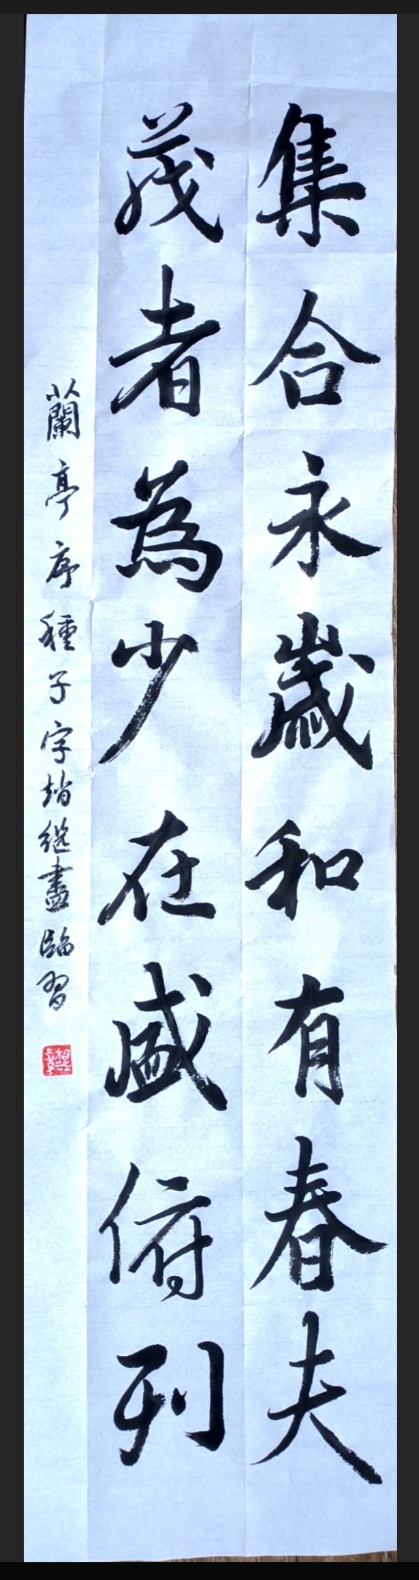 集合永歲和有春夫
茂者為少在盛俯列
以蘭亭序種子字趙繼盡臨習